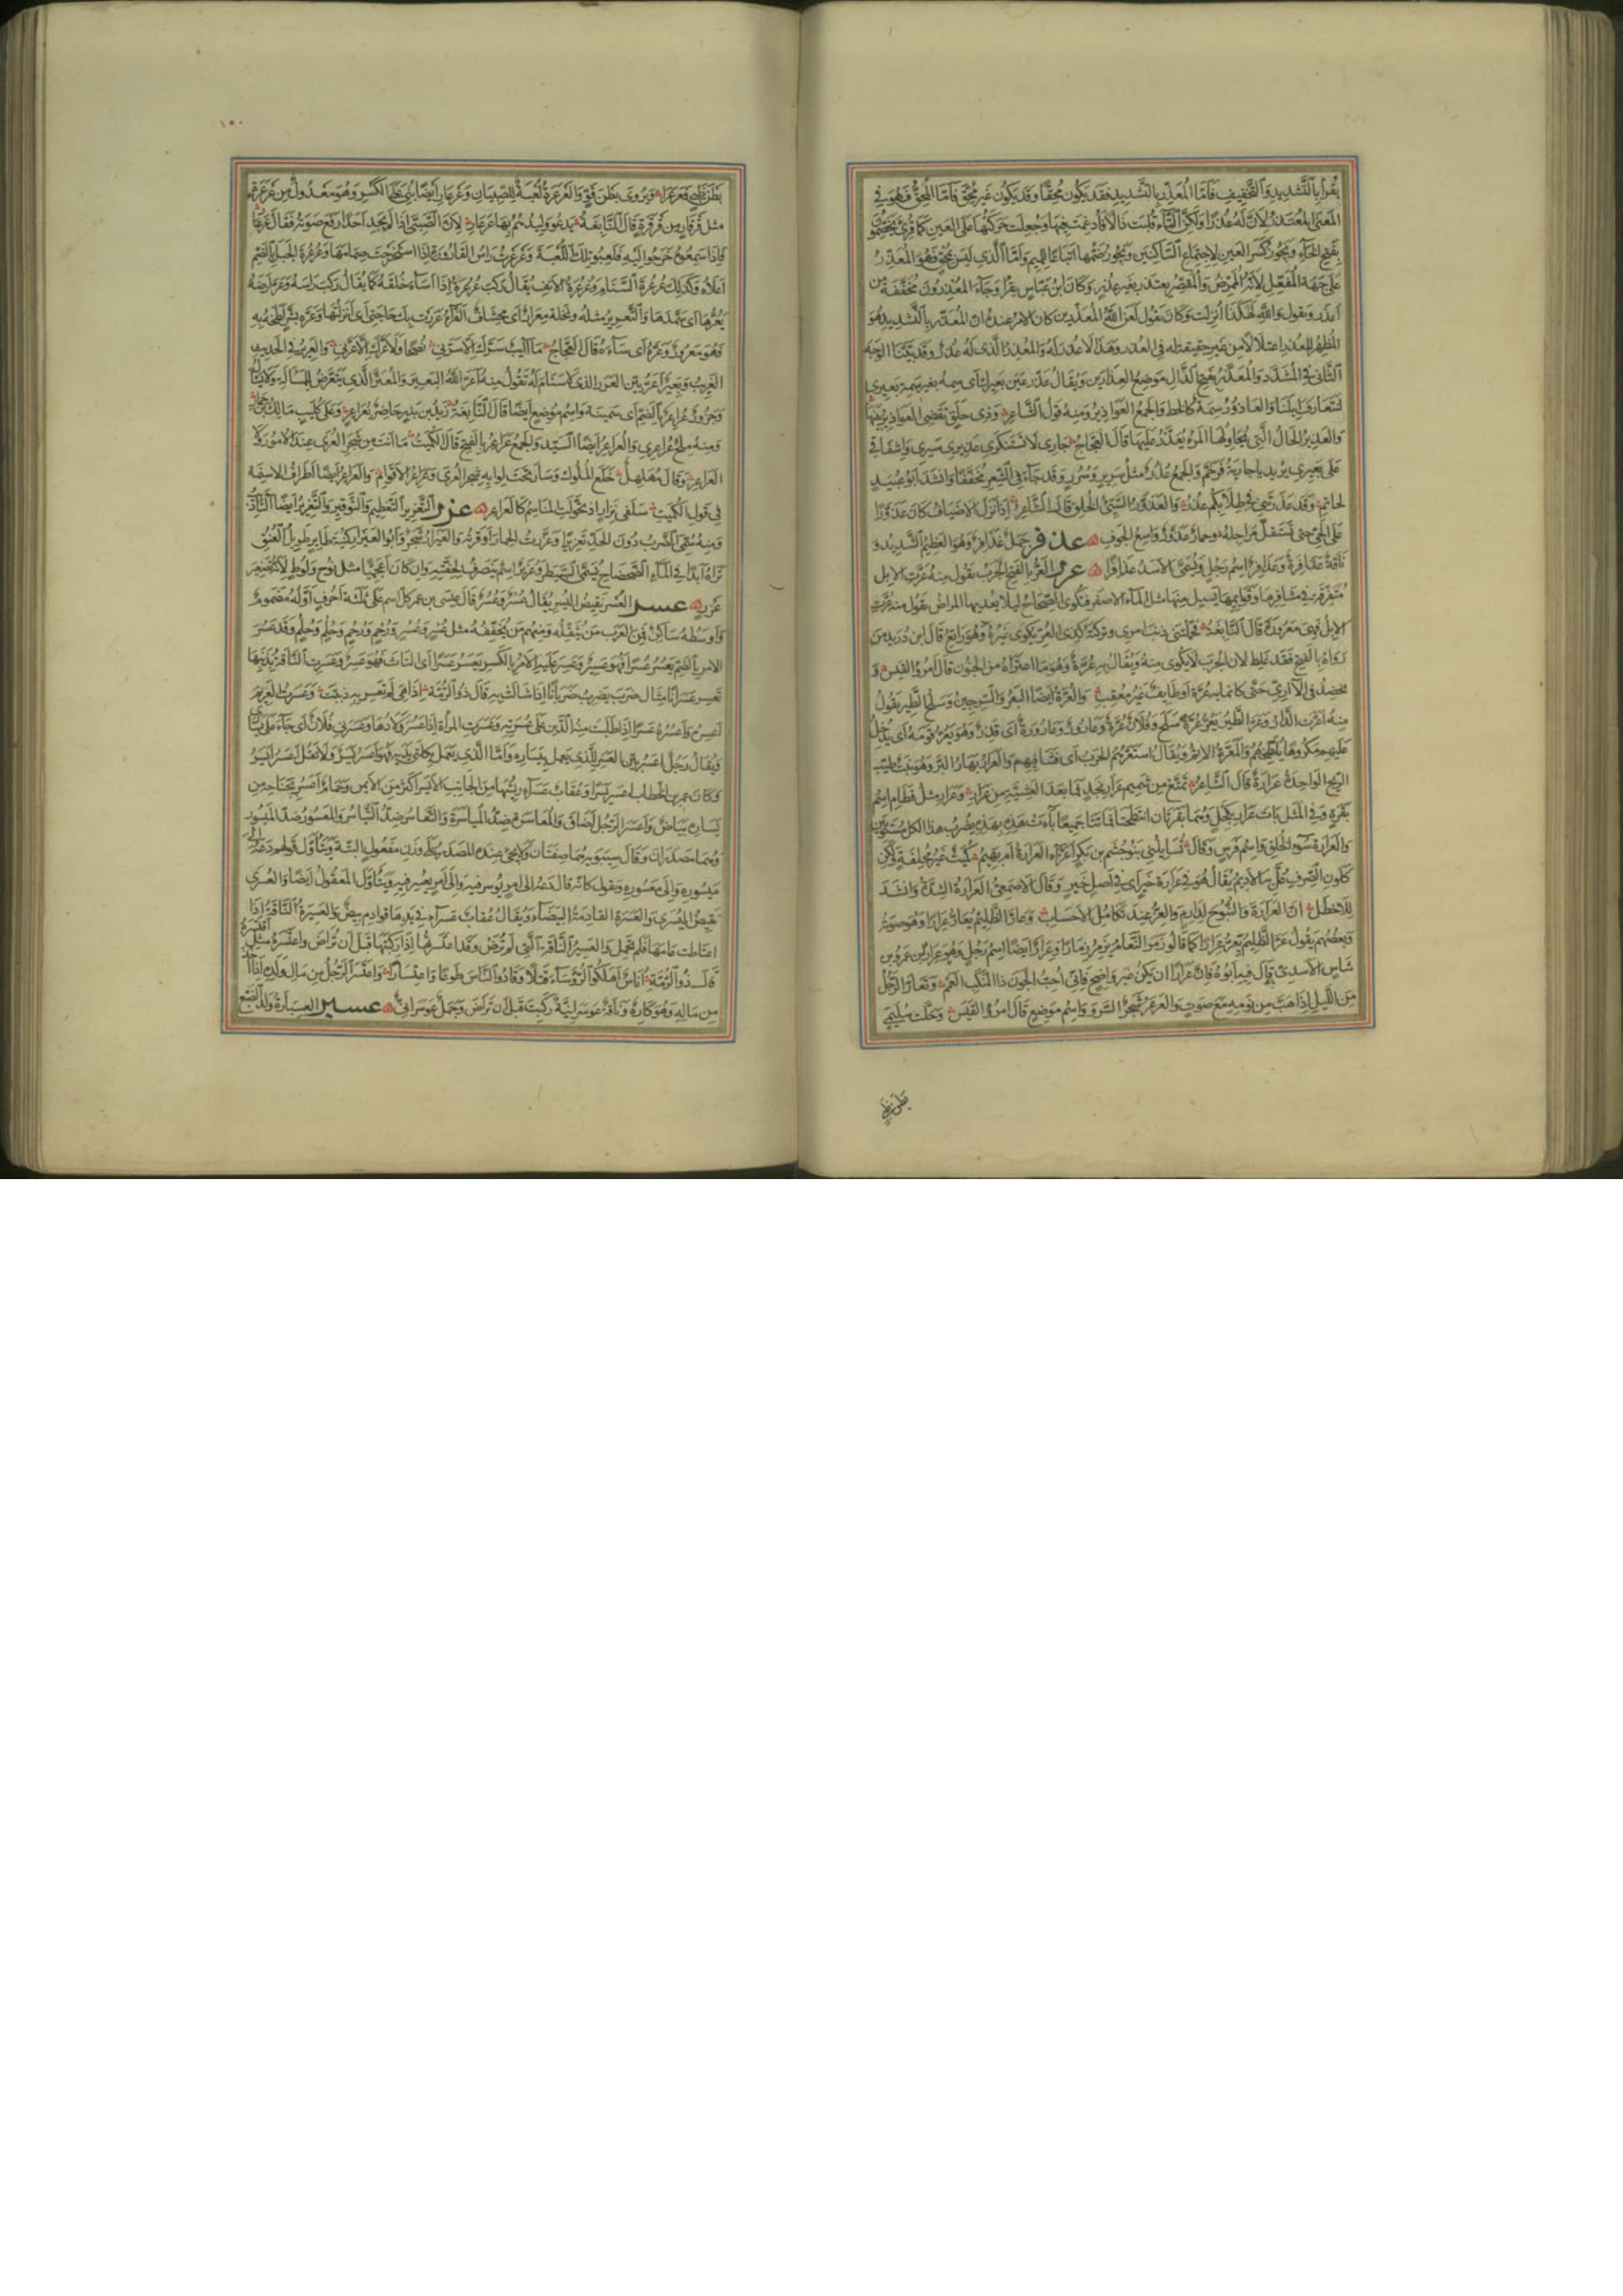 يُقرأ بالتشديد والتخفيف فأما المعذّر بالتشديد فقد يكون محقا وقد يكون غير محق فأما المحق فهو في
المعنى المعتذر لأن له عذرا ولكن التاء قلبت ذالا فأدغمت فيها وجعلت حركتها على العين كما قرئ يخصمون
بفتح الخاء ويجوز كسر العين لاجتماع الساكنين ويجوز ضمها اتباعا للميم وأما الذي ليس بمحق فهو المعذر
على جهة المفعل لأنه الممرض والمقصر يعتذر بغير عذر وكان ابن عباس يقرأ وجاء المعذرون مخففة من
أعذر ويقول والله لهكذا أنزلت وكان يقول لعن الله المعذرين كان الأمر عنده أن المعذر بالتشديد هو
المظهر للعذر اعتلالا من غير حقيقة له في العذر وهذا لا عذر له والمعذر الذي له عذر وقد بينا الوجه
الثاني في المشدد والمعذر بفتح الذال موضع العذارين ويقال عذر عين بعيرك أي سمه بغير سمة بعيري
لتتعارف إبلنا والعاذور سمة كالخط والجمع العواذير ومنه قول الشاعر وذي حلق تقضي العواذير بينها
والعذير الحال التي يحاولها المرء يعذر عليها قال العجاج جاري لا تستنكري عذيري سيري وإشفاقي
على بعيري يريد يا جارية فرخم والجمع عذر مثل سرير وسرر وقد جاء في الشعر مخففا وأنشد أبو عبيد
لحاتم وقد عذرتني في طلابكم عذر والعذور السيئ الخلق قال الشاعر إذا نزل الأضياف كان عذورا
على الحي حتى تستقل مراجله وحمار عذور واسع الجوف عذفر جمل عذافر وهو العظيم الشديد و
ناقة عذافرة وعذافر اسم رجل ويسمى الأسد عذافرا عرر العر بالفتح الجرب تقول منه عرت الإبل
متفرقة في مشافرها وقوائمها يسيل منها مثل الماء الأصفر فتكوى الصحاح لئلا يعديها المراض تقول منه عرت
الإبل فهي معرورة قال النابغة فحملتني ذنب امرئ وتركته كذي العر يكوى غيره وهو راتع قال ابن دريد من
رواه بالفتح فقد غلط لأن الجرب لا يكوى منه ويقال به عرة وهو ما اعتراه من الجنون قال امرؤ القيس و
يخضد في الآري حتى كأنما به عرة أو طائف غير معقب والعرة أيضا البعر والسرجين وسلح الطير تقول
منه أعرت الدار وعر الطير يعر عرة سلح وفلان عرة وعارور وعارورة أي قذر وهو يعر قومه أي يدخل
عليهم مكروها يلطخهم والمعرة الإثم ويقال استعرهم الجرب أي فشا فيهم والعرار بهار البر وهو نبت طيب
الريح الواحدة عرارة قال الشاعر تمتع من شميم عرار نجد فما بعد العشية من عرار وعرار مثل قطام اسم
بقرة وفي المثل باءت عرار بكحل وهما بقرتان انتطحتا فماتتا جميعا باءت هذه بهذه يضرب هذا لكل مستويين
والعرارة سوء الخلق واسم فرس وقال تسائلني بنو جشم بن بكر أغراء العرارة أم بهيم كميت غير محلفة ولكن
كلون الصرف عل به الأديم يقال هو في عرارة خير أي في أصل خير وقال الأصمعي العرارة الشدة وأنشد
للأخطل إن العرارة والنبوح لدارم والعز عند تكامل الأحساب وعار الظليم يعار عرارا وهو صوته
وبعضهم يقول عر الظليم يعر عرارا كما قالوا زمر النعام يزمر زمارا وعرار أيضا اسم رجل وهو عرار بن عمرو بن
شأس الأسدي قال فيه أبوه فإن عرارا إن يكن غير واضح فإني أحب الجون ذا المنكب العمم وتعار الرجل
من الليل إذا هب من نومه مع صوت والعرعر شجر السرو واسم موضع قال امرؤ القيس وحلت سليمى
بطن ظبي
١٠٠
بطن ظبي فعرعرا ويروى بطن قو والعرعرة لعبة للصبيان وعرعار أيضا بني على الكسر وهو معدول من عرعرة
مثل قرقار من قرقرة قال النابغة يدعو وليدهم بها عرعار لأن الصبي إذا لم يجد أحدا رفع صوته فقال عرعار
فإذا سمعوه خرجوا إليه فلعبوا تلك اللعبة وعرعرت رأس القارورة إذا استخرجت صمامها وعرعرة الجبل بالضم
أعلاه وكذلك عرعرة السنام وعرعرة الأنف يقال ركب عرعره إذا أساء خلقه كما يقال ركب رأسه وعر أرضه
يعرها أي سمدها والتعرير مثله ونخلة معرار أي محشاف الفراء عررت بك حاجتي أي أنزلتها وعره بشر أي لطخه به
فهو معرور وعره أي ساءه قال العجاج ما آيب سرك إلا سرني نصحا ولا عرك إلا عرني والعرير في الحديث
الغريب وبعير أعر بين العرر الذي لا سنام له تقول منه أعر الله البعير والمعتر الذي يتعرض للمسألة ولا يسأل
وجزور عراعر بالضم أي سمينة واسم موضع أيضا قال النابغة زيد بن بدر حاضر بعراعر وعلى كنيب مالك بن حمار
ومنه ملح عراعري والعراعر أيضا السيد والجمع عراعر بالفتح قال الكميت ما أنت من شجر العرى عند الأمور ولا
العراعر وقال مهلهل خلع الملوك وسار تحت لوائه شجر العرى وعراعر الأقوام والعراعر أيضا أطراف الأسنمة
في قول الكميت سلفي نزار إذ تحولت المناسم كالعراعر عزر التعزير التعظيم والتوقير والتعزير أيضا التأديب
ومنه سمي الضرب دون الحد تعزيرا وعزرت الحمار أوقرته والعيزار شجر وأبو العيزار كنية طائر طويل العنق
تراه أبدا في الماء الضحضاح يسمى السبيطر وعزير اسم ينصرف لخفته وإن كان أعجميا مثل نوح ولوط لأنه تصغير
عزر عسر العسر نقيض اليسر يقال عسر وعسر قال عيسى بن عمر كل اسم على ثلثة أحرف أوله مضموم
وأوسطه ساكن فمن العرب من يثقله ومنهم من يخففه مثل عسر وعسر ورحم ورحم وحلم وحلم وقد عسر
الأمر بالضم يعسر عسرا فهو عسير وعسر عليه الأمر بالكسر يعسر عسرا أي التاث فهو عسر وعسرت الناقة بذنبها
تعسر عسرانا مثال ضرب يضرب ضربانا إذا شالت به قال ذو الرمة إذا هي لم تعسر به ذببت وعسرت الغريم
أعسره وأعسره عسرا إذا طلبت منه الدين على عسرته وعسرت المرأة إذا عسر ولادها وعسرني فلان أي جاء على يساري
ويقال رجل أعسر بين العسر للذي يعمل بيساره وأما الذي يعمل بكلتي يديه فهو أعسر يسر ولا تقل أعسر أيسر
وكان عمر بن الخطاب أعسر يسرا وعقاب عسراء ريشها من الجانب الأيسر أكثر من الأيمن وحمام أعسر بجناحه من
يساره بياض وأعسر الرجل أضاق والمعاسرة ضد المياسرة والتعاسر ضد التياسر والمعسور ضد الميسور
وهما مصدران وقال سيبويه هما صفتان ولا يجيء عنده المصدر على وزن مفعول البتة ويتأول قولهم دعه إلى
ميسوره وإلى معسوره ويقول كأنه قال دعه إلى أمر يوسر فيه وإلى أمر يعسر فيه ويتأول المعقول أيضا والعسرى
نقيض اليسرى والعسرة القادمة البيضاء ويقال عقاب عسراء في يدها قوادم بيض والعسيرة الناقة إذا
اعتاطت عامها فلم تحمل والعسير الناقة التي لم ترض وقد اعتسرتها إذا ركبتها قبل أن تراض واعتسره مثل اقتسره
قال ذو الرمة أناس أهلكوا الرؤساء قتلا وقادوا الناس طوعا واعتسارا واعتسر الرجل من مال ولده إذا أخذ
من ماله وهو كاره وناقة عوسرانية ركبت قبل أن تراض وجمل عوسراني عسبر العسبارة ولد الضبع